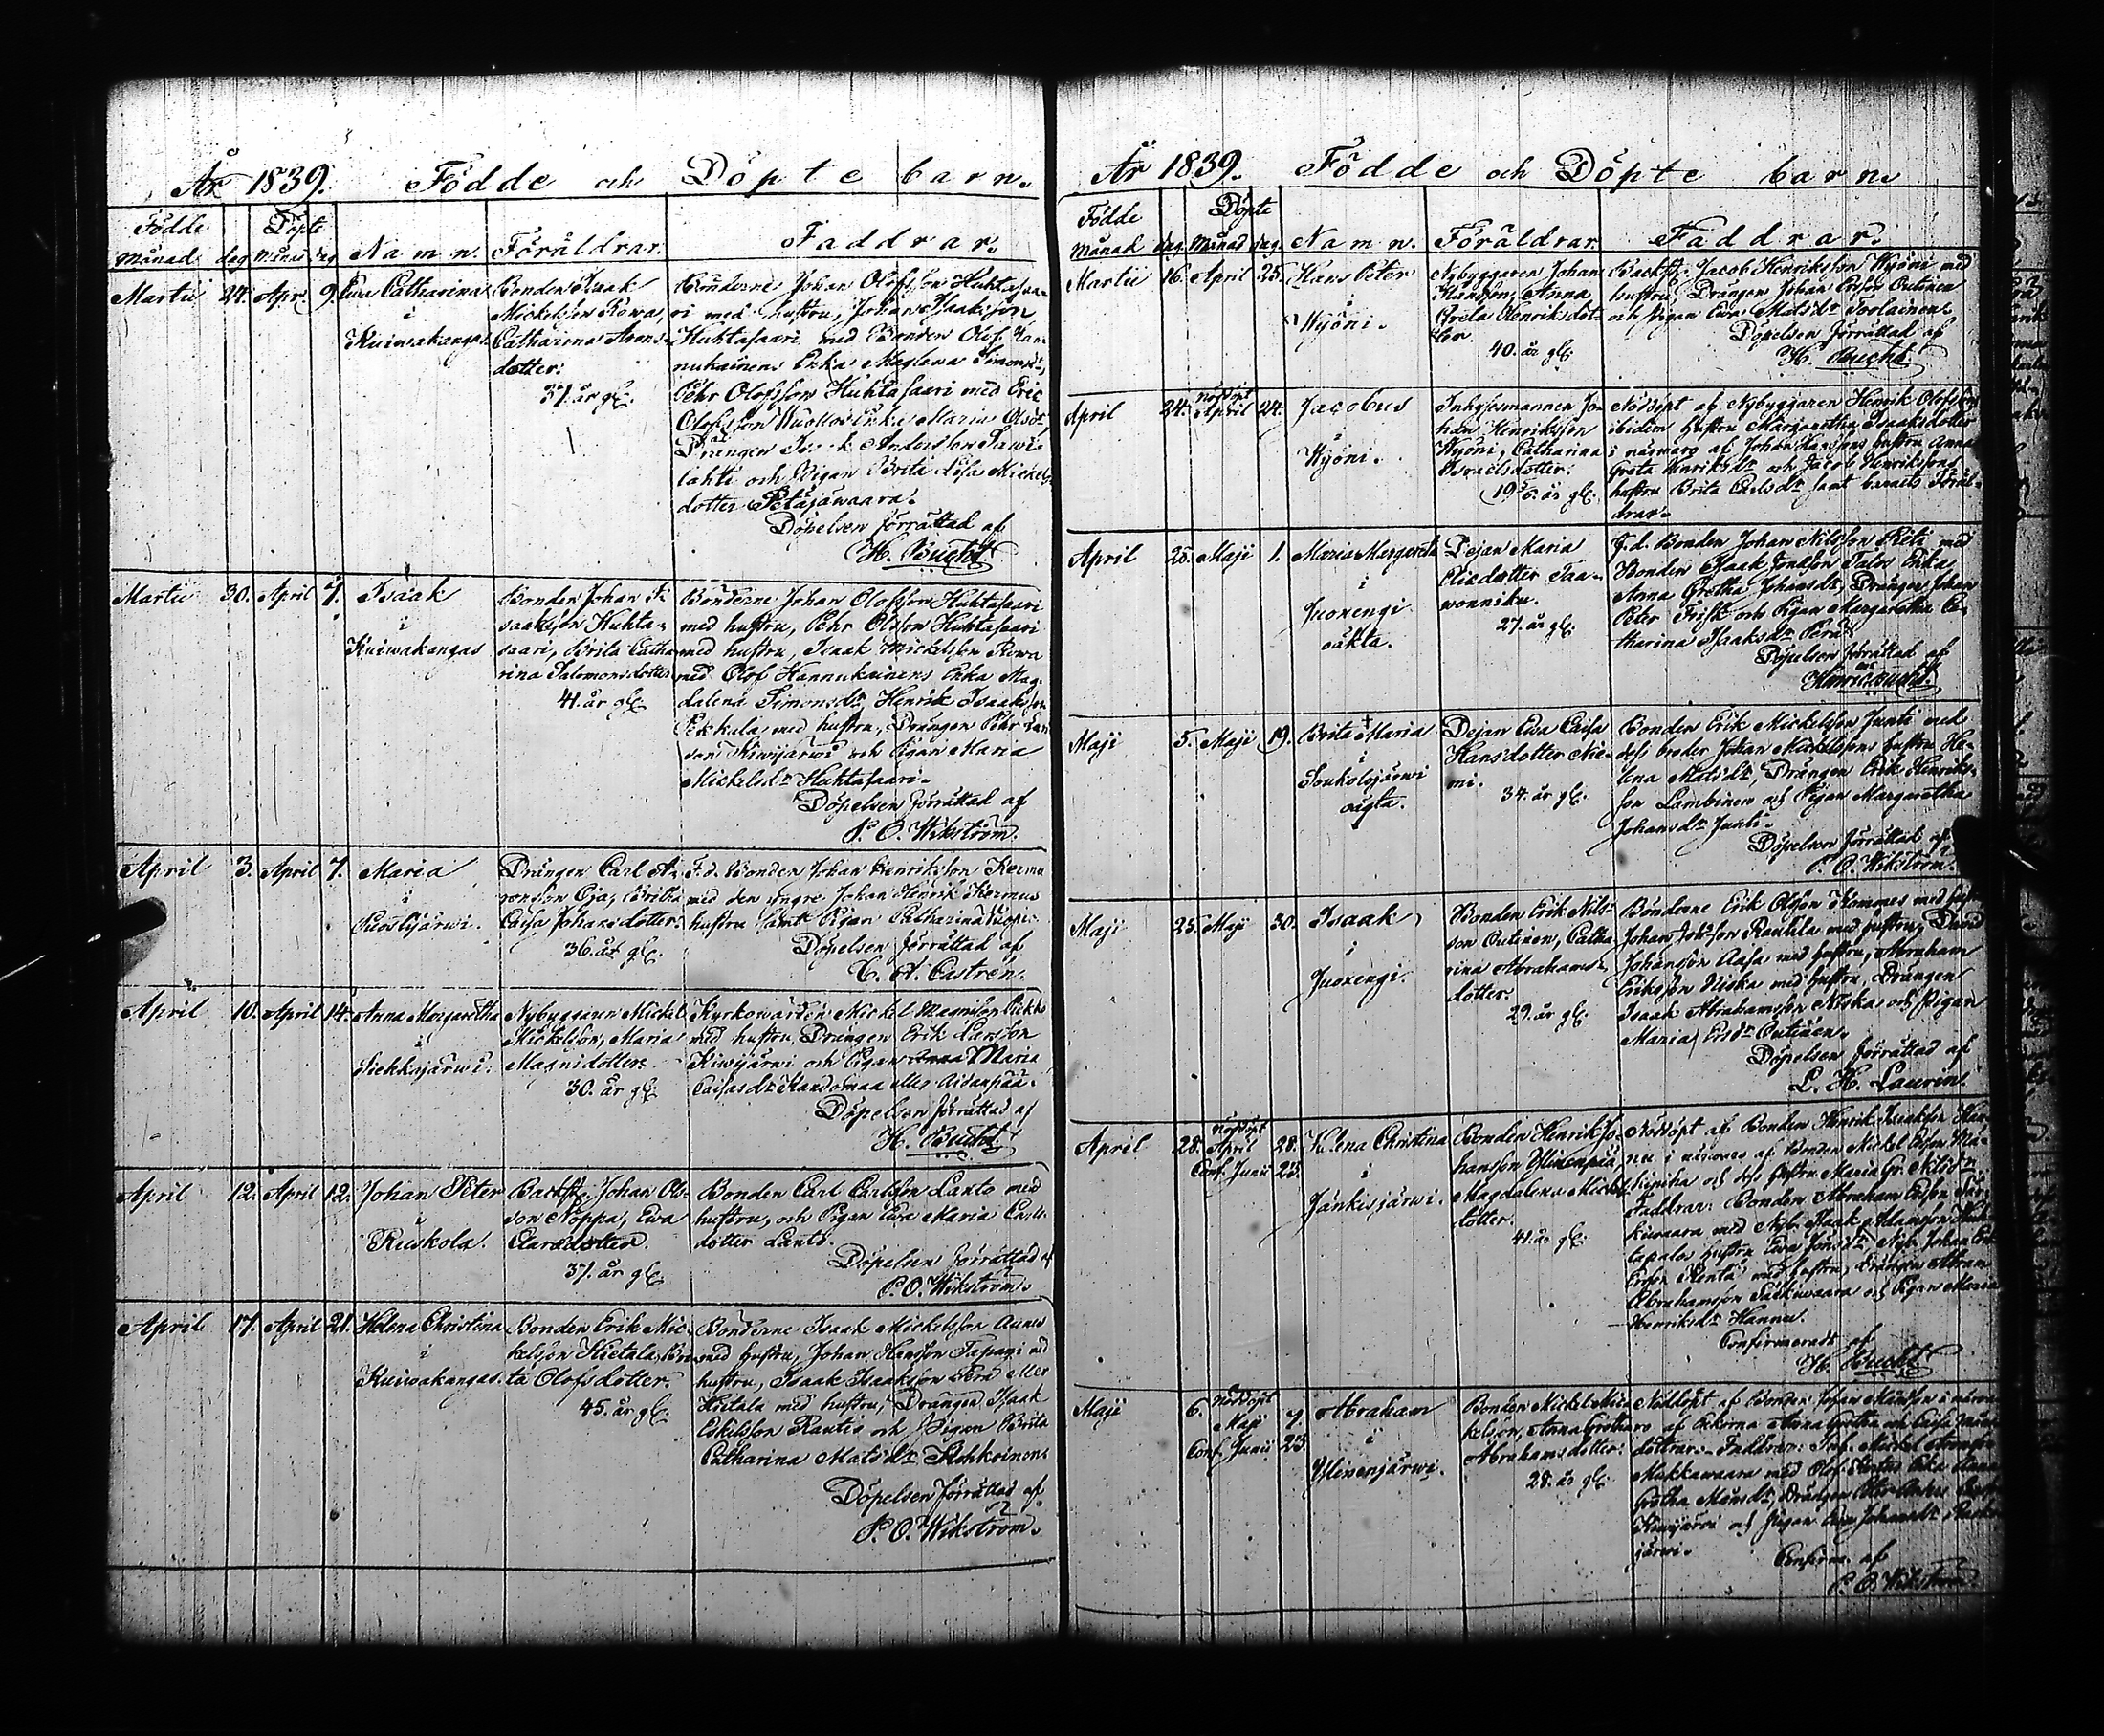 År 1839. Födde och Döpte barn.
Födde Döpte
månad dag Månad dag Namn. Föräldrar. Faddrar.
Martii 24. Apr. 9. Ewa Catharina
i
Kuiwakangas
Bonden Isaak
Mickelsson Rowa,
Catharina Arons-
dotter.
37. år gl.
Bönderne Johan Olofsson Huhtasaa-
ri med hustru, Johan Isaaksson
Huhtasaari med Bonden Olof Han-
nukainens Enka Maglena Simonsdr,
Pehr Olofsson Huhtasaari med Eric
Olofsson Enka Maria Olsdr
Drängen Isaak Andersson Sawi-
lahti och Pigan Brita Lisa Mickels-
dotter Petäjäwaara.
Döpelsen förrättad af
H. Bucht
Martii 30. April 7. Isaak
i
Kuiwakangas
Bonden Johan I-
saaksson Huhta-
saari, Brita Catha-
rina Salomonsdotter
41. år gl.
Bönderne Johan Olofsson Huhtasaari
med hustru, Pehr Olsson Huhtasaari
med hustru, Isaak Mickelsson Rowa
med Olof Hannukainens Enka Mag-
dalena Simonsdr, Henrik Isaaksson
med hustru, Drängen Pehr Lars-
son Kiwijärwi och Pigan Maria
Mickelsdr Huhtasaari.
Döpelsen förrättad af
P. O. Wikström.
April 3. April 7. Maria
i
Puostijärwi.
Drängen Carl A-
ronsson Oja, Britha
Caisa Johansdotter.
36. år gl.
F.d. Bonden Johan Henriksson
med den yngre Johan Henrik Kermus
hustru samt Pigan Catharina
Döpelsen förrättad af
C. A. Castrén.
April 10. April 14. Anna Margaretha
i
Siekkajärwi.
Nybyggaren Mickel
Mickelson, Maria
Magnidotter.
30. år gl.
Kyrkowärden Mickel Magnisson
med hustru, Drängen Erik Larsson
Kiwijärwi och Pigan Maria
Caisasdr eller Aidanpää.
Döpelsen förrättad af
H. Bucht
April 12. April 12. Johan Peter
i
Ruskola.
Backst. Johan Ols-
son Noppa, Ewa
Clarædotter.
37. år gl.
Bonden Carl Carlsson Lanto med
hustru, och Pigan Ewa Maria Carls-
dotter Lanto.
Döpelsen förrättad af
P. O. Wikström.
April 17. April 21. Helena Christina
i
Kuiwakangas.
Bonden Erik Mic-
kelsson Hietala, Bri-
ta Olofsdotter.
45. år gl.
Bönderne Isaak Mickelsson Auno
med hustru, Johan Hansson Tapani med
hustru, Isaak Isaaksson eller
Hietala med hustru, Drängen Isaak
Eskilsson Rautio och Pigan Brita
Catharina Matsdr
Döpelsen förrättad af
P. O. Wikström.
År 1839. Födde och Döpte barn.
Födde Döpte
månad dag. Månad dag. Namn. Föräldrar Faddrar.
Martii 16. April 25. Hans Peter
i
Wyöni.
Nybyggaren Johan
Hansson, Anna
Greta Henriksdot-
ter.
40. år gl.
Backst. Jacob Henriksson Wyöni med
hustru, Drängen Johan Ersson Outinen
och Pigan Ewa Matsdr Toolainen.
Döpelsen förrättad af
H. Bucht
April 24. nöddöpt April 24. Jacobus
i
Wyöni.
Inhysesmannen Jo-
han Henriksson
Wyöni, Catharina
Israelsdotter.
år gl.
Nöddöpt af Nybyggaren Henrik Olofsson
ibidem hustru Margaretha Isaaksdotter
i närwaro af Johan Hanssons hustru Anna
Greta Henriksdr och Jacob Henrikssons
hustru Brita Carlsdr samt barnets Föräl-
drar.
April 25. Maji 1. Maria Margareta
i
Juoxengi
oäkta.
Dejan Maria
Elisdotter Taa-
wonniku.
27. år gl.
F.d. Bonden Johan Nilsson med
Bonden Isaak Jonsson Talos Enka
Anna Gretha Johansdr, Drängen Johan
Peter Frisk och Pigan Margaretha Ca-
tharina Isaaksdr Perä.
Döpelsen förrättad af
Henric Bucht.
Maji 5. Maji 19. Brita Maria
i
Soukolojärwi
oägta.
Dejan Ewa Caisa
Hansdotter Nie-
mi.
34. år gl.
Bonden Erik Mickelsson Junti med
dess broder Johan Mickelssons hustru He-
lena Matsdr, Drängen Erik Henriks-
son Lambinen och Pigan Margaretha
Johansdr Junti.
Döpelsen förrättad af
P. O. Wikström.
Maji 25. Maji 30. Isaak
i
Juoxengi.
Bonden Erik Nils-
son Outinen, Catha-
rina Abrahams-
dotter.
29. år gl.
Bönderne Erik Olsson Kommes med hustru
Johan Rantila med hustru, David
Johansson Aasa med hustru, Abraham
Eriksson Niska med hustru, Drängen
Isaak Abrahamsson Niska och Pigan
Maria Ersdr Outinen.
Döpelsen förrättad af
L. H. Laurin.
April 28. nöddöpt April 28. Helena Christina
Conf. Junii 23. i
Jänkisjärwi.
Bonden Henrik Jo-
hansson Ylinenpää,
Magdalena Mickels-
dotter.
41. år gl.
Nöddöpt af Bonden Henrik Isaaksson Han-
nu i närwaro af Bonden Mickel Ersson
och dess hustru Maria Gr. Nilsdr.
Faddrar: Bonden Abraham Ersson Sär-
kiwaara med Nyb. Isaak Adamsson
hustru Ewa Jönsdr, Nyb. Johan
Ersson Kenta med hustru, Drängen Abram
Abrahamsson Särkiwaara och Pigan Maria
Henriksdr Hannu.
Confirmeradt af
H. Bucht
Maji 6. nöddöpt Maji 7. Abraham
Conf. Junii 23. i
Ylinenjärwi.
Bonden Mickel Mic-
kelson, Anna Gretha
Abrahamsdotter.
28. år gl.
Nöddöpt af Bonden Johan Månsson i närwa-
ro af Pigorna Anna Gretha och Caisa Måns-
döttrar. Faddrar: Inh. Mickel
Mukkawaara med Olof Enka Anna
Gretha Månsdr, Drängen
Kiwijärwi och Pigan Johansdr
järwi. Confirm. af
P. O. Wikström